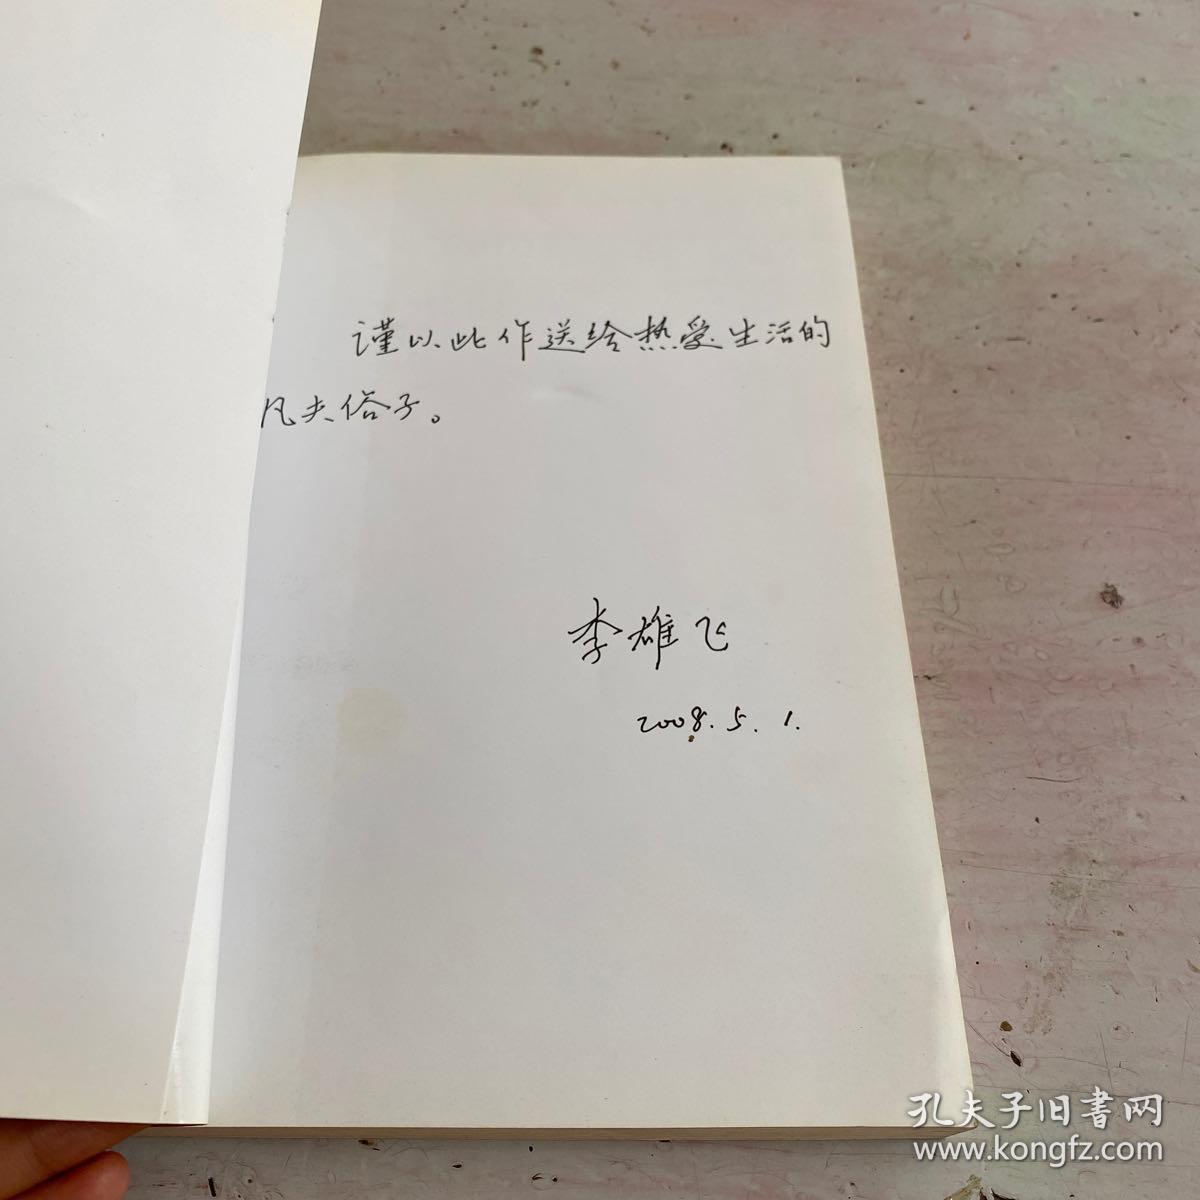 谨以此作送给热爱生活的
凡夫俗子。
李雄飞
2008.5.1.
孔夫子旧書网
www.kongfz.com